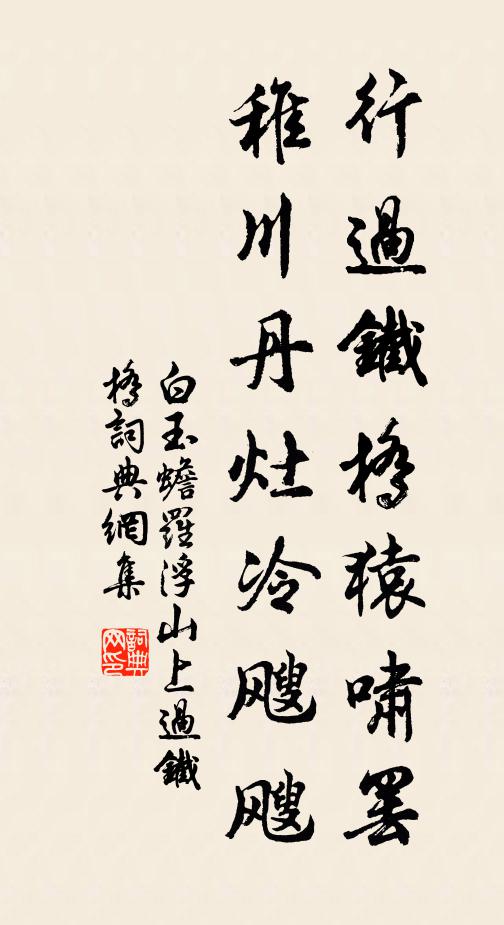 行過鐵橋猿嘯罷
稚川丹灶冷颼颼
白玉蟾羅浮山上過鐵
橋詞典網集
詞典
网印